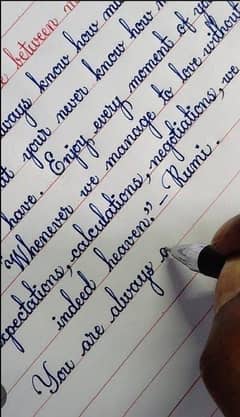 e between m
ways know how mu
at your never know how m
have. Enjoy every moment of yo
"Whenever we manage to love without
xpectations, calculations, negotiations, we
indeed heaven." – Rumi.
You are always